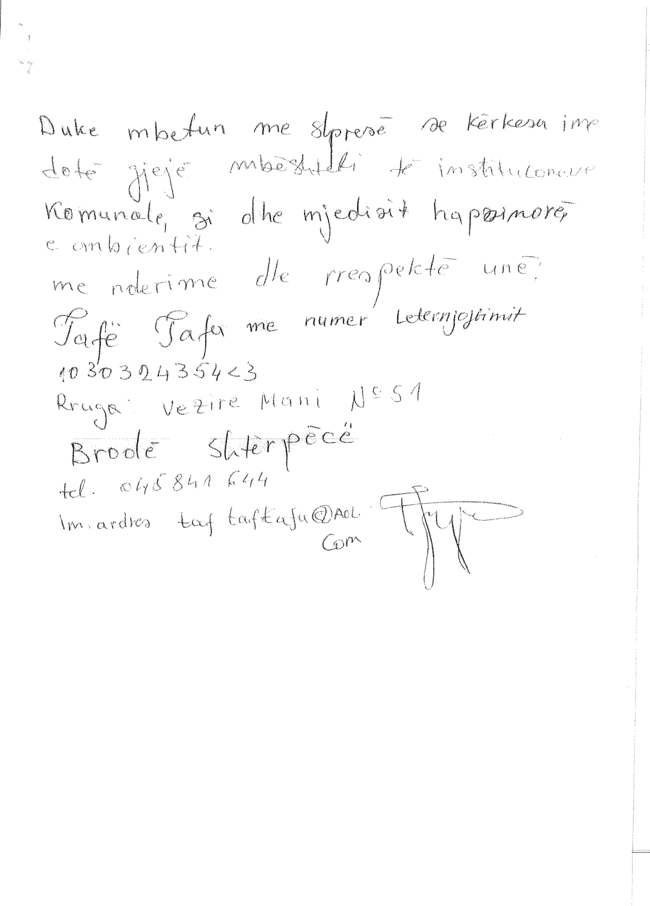 Duke mbetun me shpresë se kërkesa ime
dotë gjejë mbështeki të institucioneve
Komunale, si dhe mjedisit hapsimorë,
e ambientit.
me nderime dhe rrespektë unë:
Tafë Tafa me numer Leternjoftimit
1030324354<3
Rruga: Vezire Mani Nº 51
Brodë shtërpëcë
tel. 045 841 644
Im. ardres taf taftafa@AoL.
Com